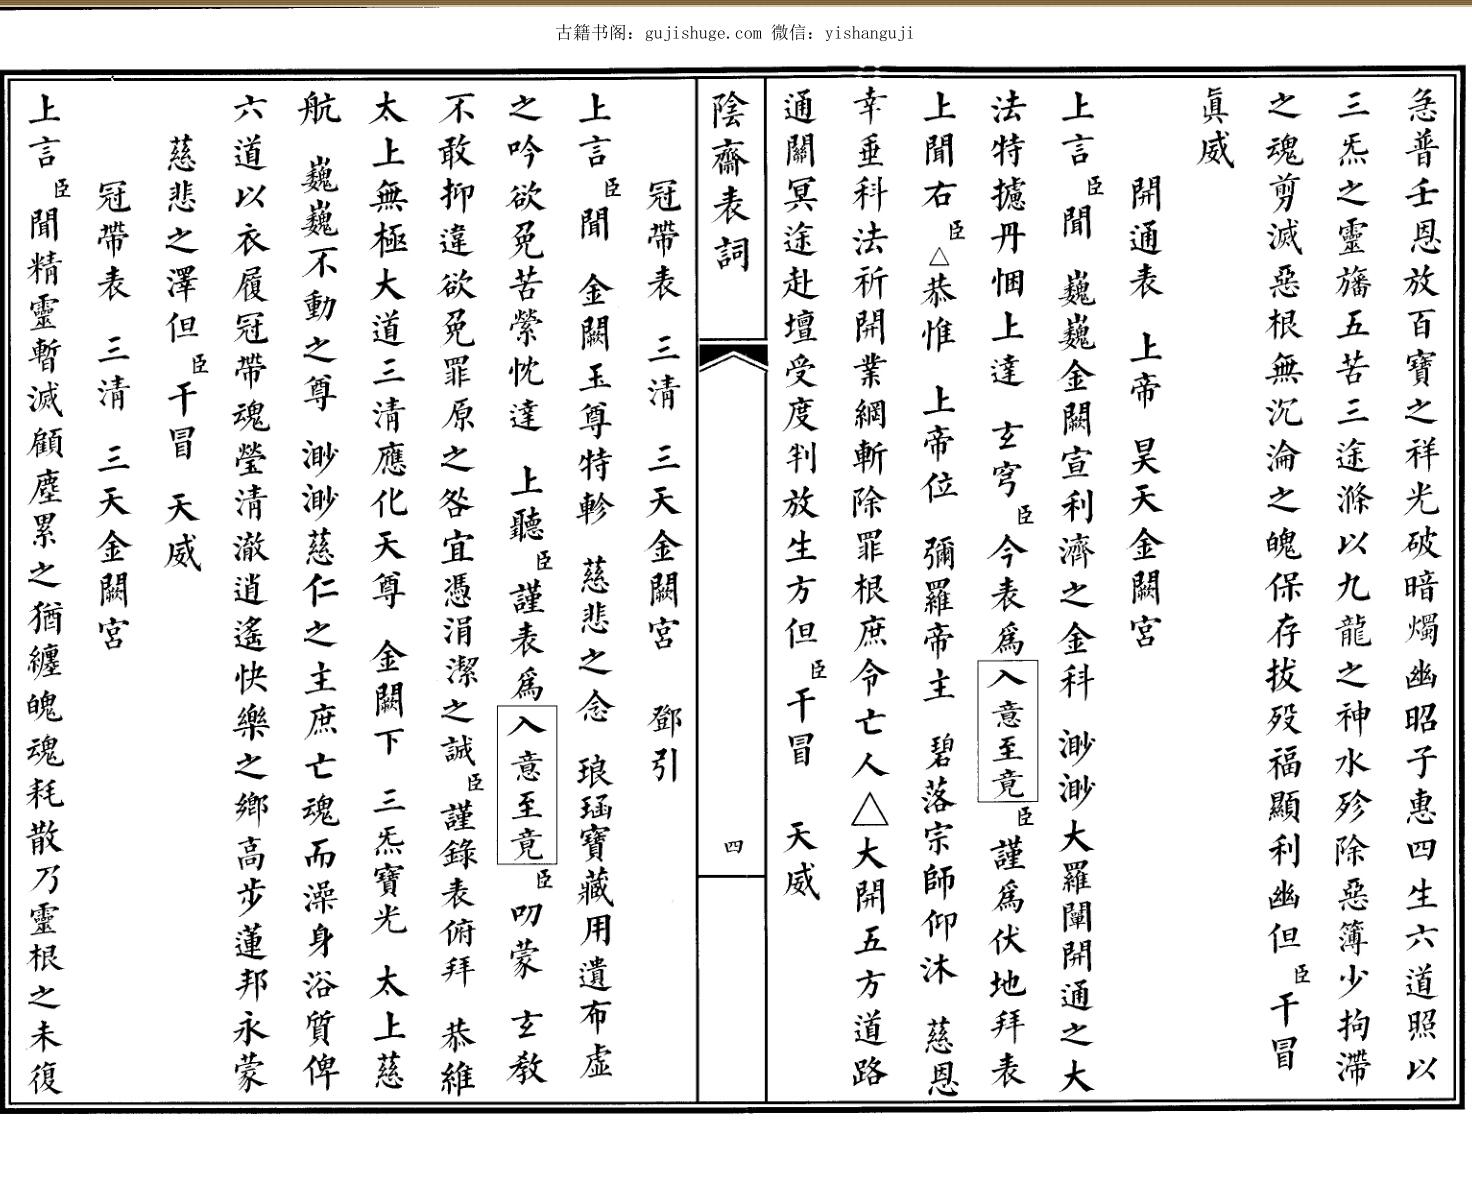 古籍书阁：gujishuge.com 微信：yishanguji
急普壬恩放百寶之祥光破暗燭幽昭子惠四生六道照以
三炁之靈旛五苦三途滌以九龍之神水殄除惡簿少拘滯
之魂剪滅惡根無沉淪之魄保存拔歿福顯利幽但臣干冒
眞威
開通表　上帝　昊天金闕宮
上言臣聞　巍巍金闕宣利濟之金科　渺渺大羅闡開通之大
法特攄丹悃上達　玄穹臣今表爲入意至竟臣謹爲伏地拜表
上聞右臣△恭惟　上帝位　彌羅帝主　碧落宗師仰沐　慈恩
幸垂科法祈開業網斬除罪根庶令亡人△大開五方道路
通關冥途赴壇受度判放生方但臣干冒　天威
陰齋表詞
四
冠帶表　三淸　三天金闕宮　鄧引
上言臣聞　金闕玉尊特軫　慈悲之念　琅函寶藏用遺布虛
之吟欲免苦縈忱達　上聽臣謹表爲入意至竟臣叨蒙　玄教
不敢抑違欲免罪原之咎宜憑涓潔之誠臣謹錄表俯拜　恭維
太上無極大道三清應化天尊　金闕下　三炁寶光　太上慈
航　巍巍不動之尊　渺渺慈仁之主庶亡魂而澡身浴質俾
六道以衣履冠帶魂瑩清澈逍遙快樂之鄉高步蓮邦永蒙
慈悲之澤但臣干冒　天威
冠帶表　三淸　三天金闕宮
上言臣聞精靈暫滅顧塵累之猶纏魄魂耗散乃靈根之未復